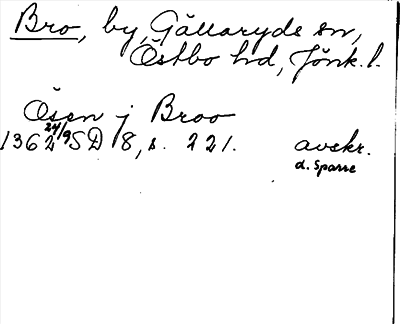 Bro, by, Gällaryds sn,
Östbo hd, Jönk. l.
Ösen j Broo
1362 24/9 SD 8, s. 221. avskr.
d. Sparre